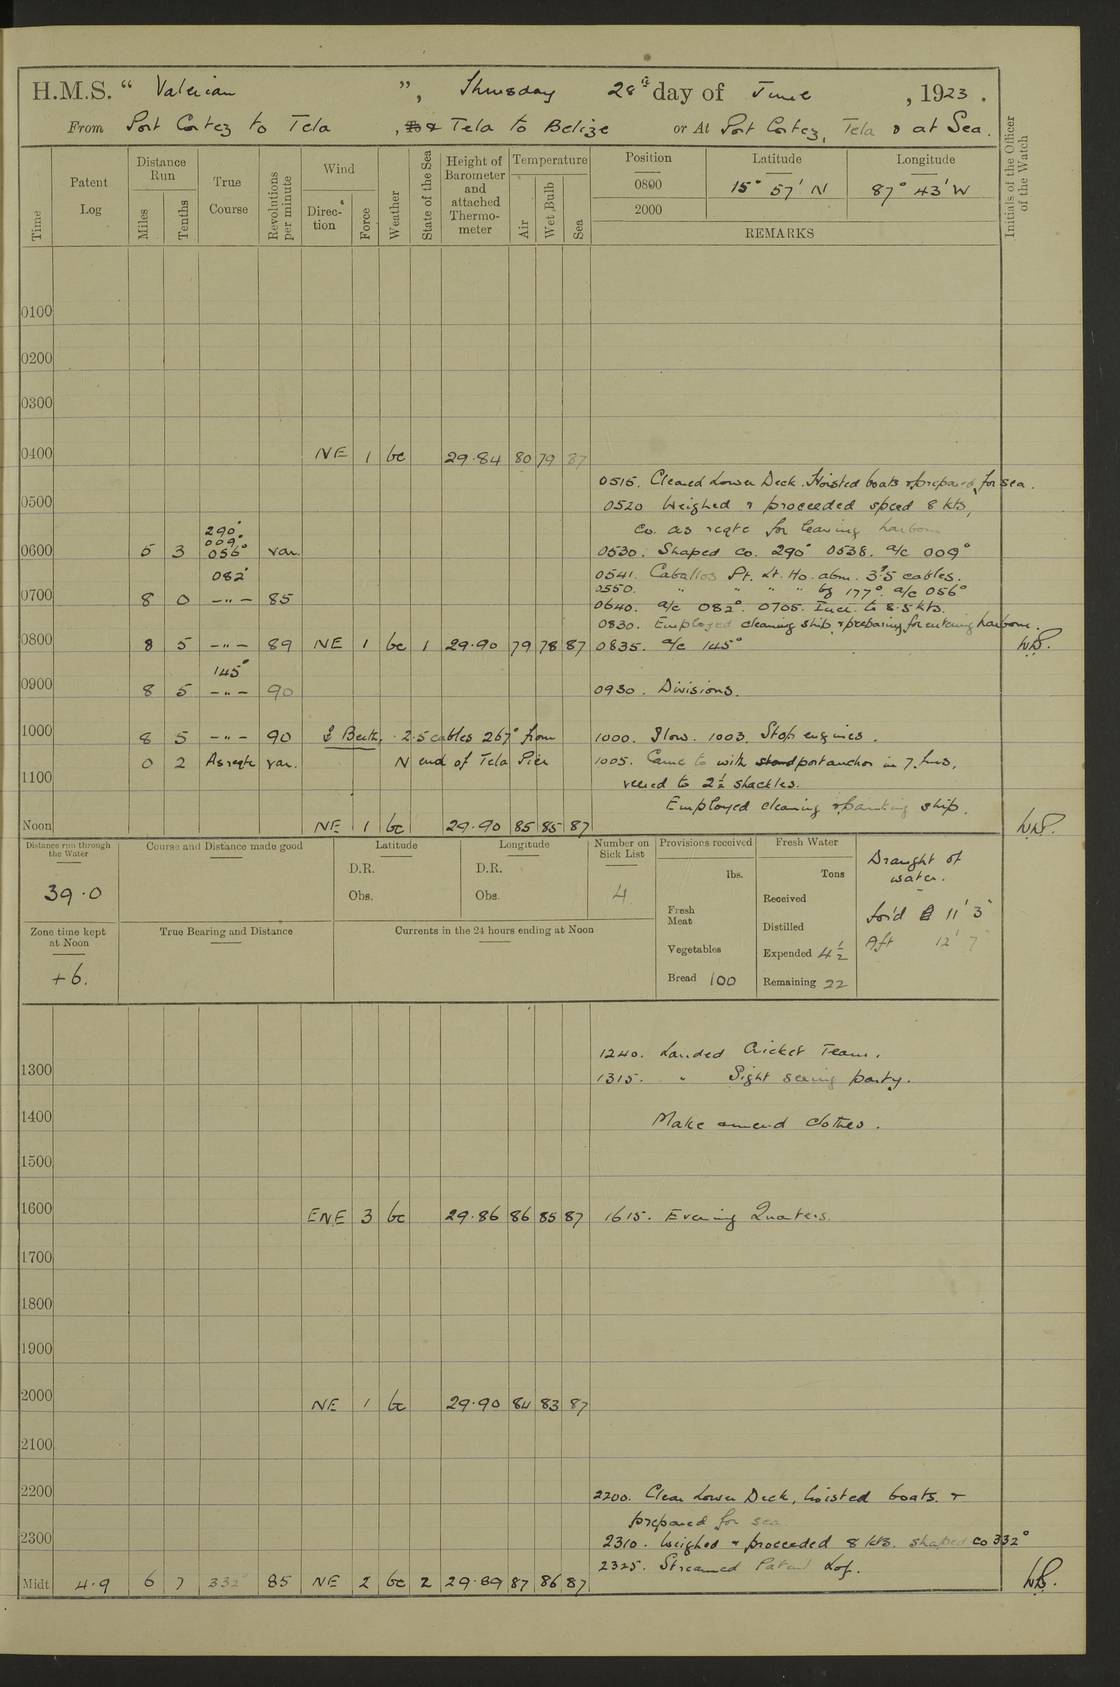 H.M.S. “ Valerian ”, Thursday 28th day of June , 1923 .
From Port Cortez to Tela , Tela to Belize or At Port Cortez, Tela & at Sea.
Time
Patent Log
Distance Run
Miles
Tenths
True Course
Revolutions per minute
Wind
Direction
Force
Weather
State of the Sea
Height of Barometer and attached Thermometer
Temperature
Air
Wet Bulb
Sea
Position
0800
2000
Latitude
15° 57' N
Longitude
87° 43' W
REMARKS
Initials of the Officer of the Watch
0100
0200
0300
0400 NE 1 bc 29.84 80 79 87
0515. Cleared Lower Deck. Hoisted boats & prepared for sea.
0500
0520 Weighed & proceeded speed 8 kts,
Co. as reqte for leaving harbour
290°
009°
0600 5 3 056° var. 0530. Shaped Co. 290° 0538. a/c 009°
082°
0541. Caballos Pt. Lt. Ho. abm. 3.5 cables.
0550. " " " " by 177°. a/c 056°
0700 8 0 -"- 85
0640. a/c 082°. 0705. Incr. to 8.5 kts.
0830. Employed cleaning ship & preparing for entering harbour.
0800 8 5 -"- 89 NE 1 bc 1 29.90 79 78 87 0835. a/c 145°
145°
0900 8 5 -"- 90 0930. Divisions.
1000 8 5 -"- 90 Berth. 2.5 cables 267° from 1000. Slow. 1003. Stop engines.
0 2 As reqte var. N end of Tela Pier 1005. Came to with port anchor in 7 fms,
1100 veered to 2½ shackles.
Employed cleaning & painting ship.
Noon NE 1 bc 29.90 85 85 87
Distance run through the Water
39.0
Zone time kept at Noon
+6.
Course and Distance made good
True Bearing and Distance
Latitude
D.R.
Obs.
Longitude
D.R.
Obs.
Currents in the 24 hours ending at Noon
Number on Sick List
4
Provisions received
lbs.
Fresh Meat
Vegetables
Bread 100
Fresh Water
Tons
Received
Distilled
Expended 4½
Remaining 22
Draught of
water.
For'd 11' 3"
Aft 12' 7"
1240. Landed Cricket Team.
1300
1315. " Sight seeing party.
1400 Make & mend clothes.
1500
1600 ENE 3 bc 29.86 86 85 87 1615. Evening Quarters.
1700
1800
1900
2000 NE 1 bc 29.90 84 83 87
2100
2200 2200. Clear Lower Deck, hoisted boats. &
prepared for sea
2300 2310. Weighed & proceeded 8 kts. shaped co 332°
2325. Streamed Patent Log.
Midt 4.9 6 7 332° 85 NE 2 bc 2 29.89 87 86 87